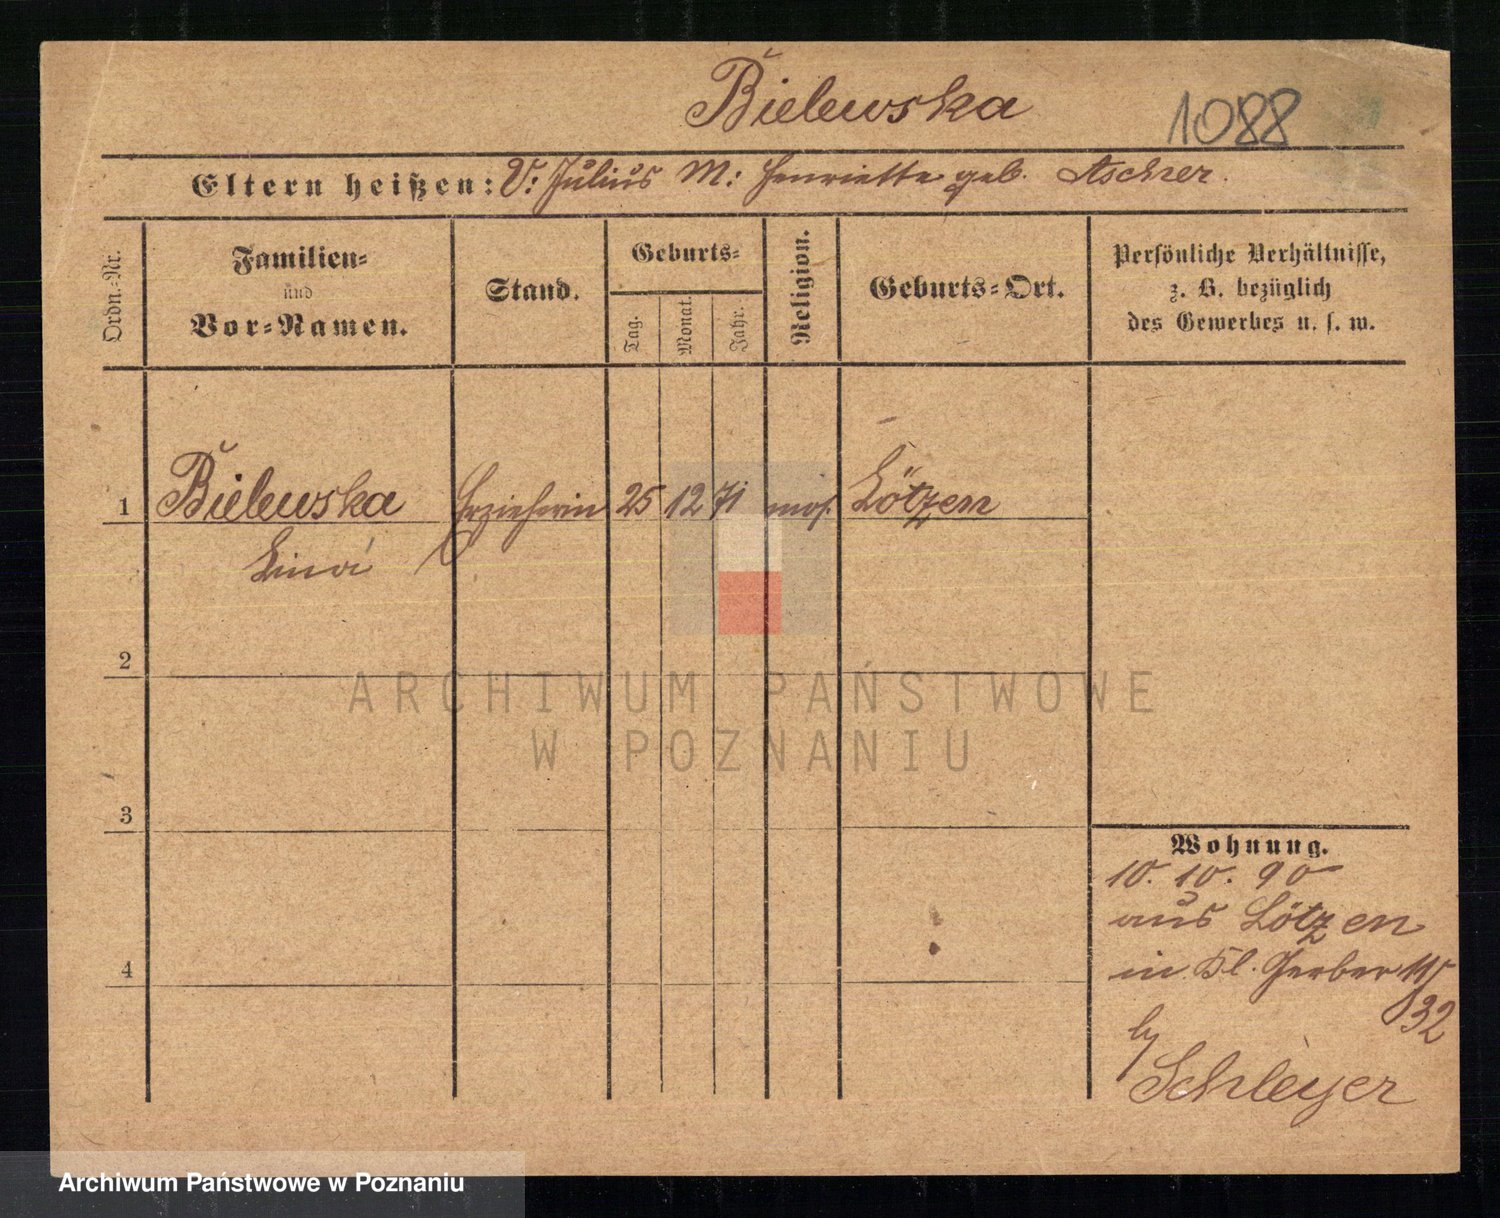 Bielewska
1088
Eltern heißen: V: Julius M: Henriette geb. Ascher.
Ordn.-Nr.
Familien-
und
Vor-Namen.
Stand.
Geburts-
Tag.
Monat.
Jahr.
Religion.
Geburts-Ort.
Persönliche Verhältnisse,
z. B. bezüglich
des Gewerbes u. s. w.
1 Bielewska Erzieherin 25 12 71 mos. Lötzen
Lina
2
3
4
Wohnung.
10. 10. 90
aus Lötzen
in Kl. Gerber
32
by
Schleyer
ARCHIWUM PAŃSTWOWE
W POZNANIU
Archiwum Państwowe w Poznaniu